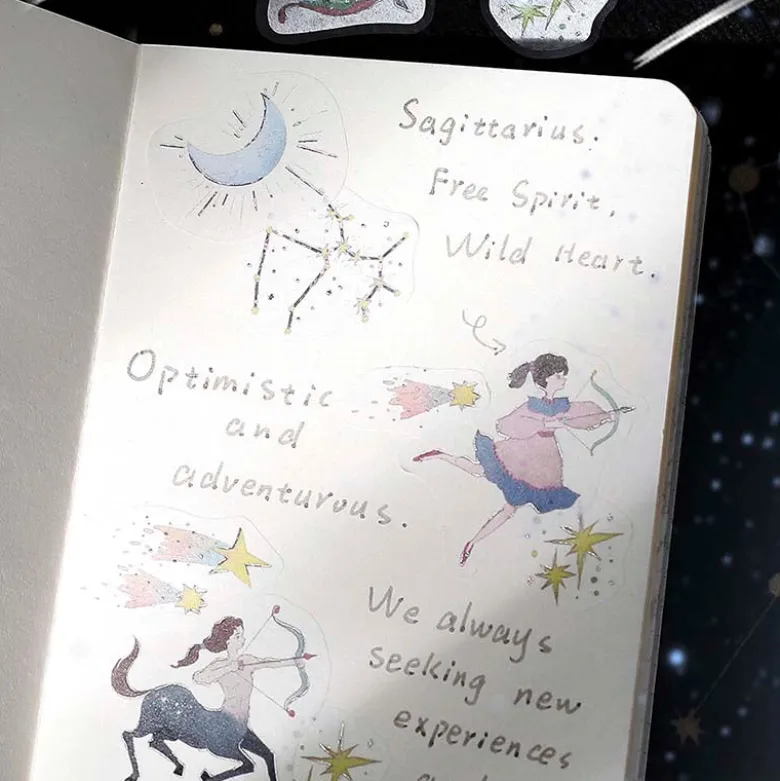 Sagittarius:
Free Spirit,
Wild Heart.
Optimistic
and
adventurous.
We always
seeking new
experiences